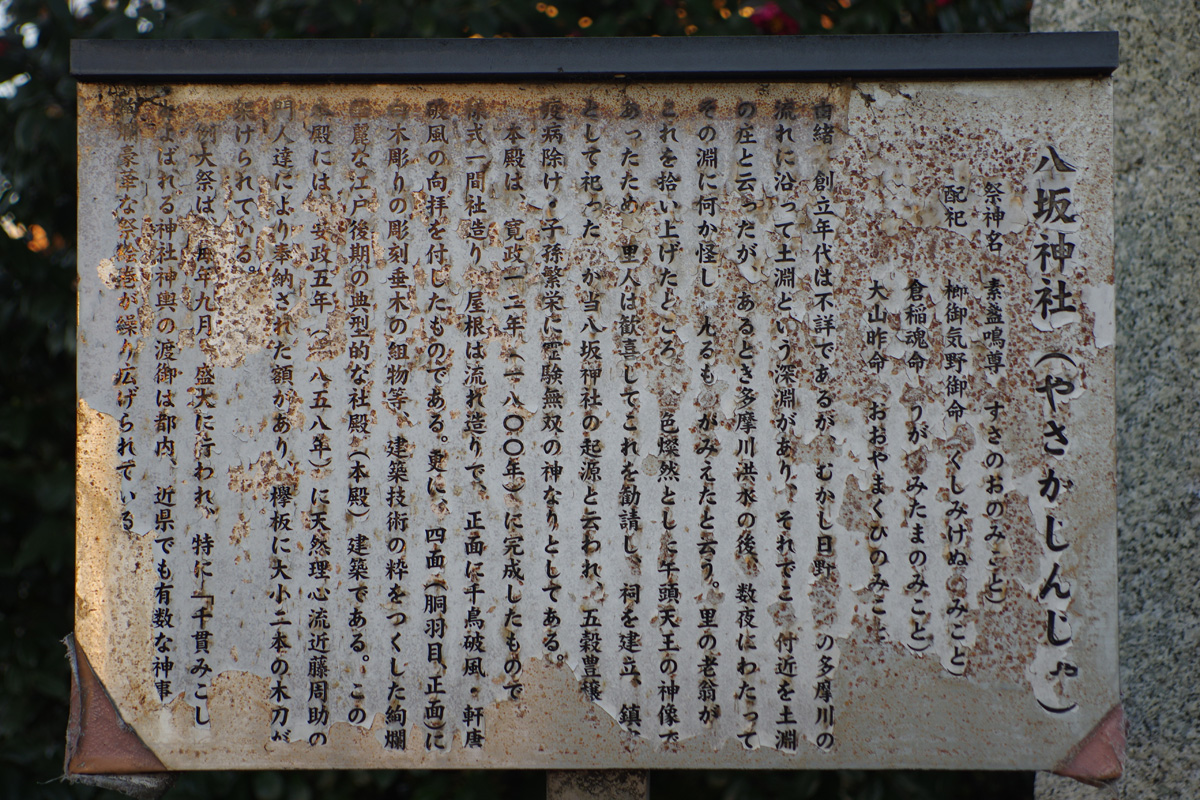 八坂神社（やさかじんじゃ）
祭神名 素盞嗚尊 すさのおのみこと）
配祀 櫛御気野御命（くしみけぬ みこと）
倉稲魂命 うが みたまのみこと）
大山咋命 おおやまくひのみこと
由緒 創立年代は不詳であるが、むかし日野 の多摩川の
流れに沿って土淵という深淵があり、それでこ 付近を土淵
の庄と云ったが あるとき多摩川洪水の後、数夜にわたって
その淵に何か怪し 光るも がみえたと云う。里の老翁が
これを拾い上げたところ 色燦然とした牛頭天王の神像で
あったため 里人は歓喜してこれを勧請し、祠を建立、鎮
として祀った が当八坂神社の起源と云われ、五穀豊穣
疫病除け・子孫繁栄に霊験無双の神なりとしてある。
本殿は、寛政一二年（一八〇〇年）に完成したもので
様式一間社造り、屋根は流れ造りで、正面に千鳥破風・軒唐
破風の向拝を付したものである。更に、四面（胴羽目、正面）に
白木彫りの彫刻垂木の組物等、建築技術の粋をつくした絢爛
麗な江戸後期の典型的な社殿（本殿）建築である。この
本殿には、安政五年（一八五八年）に天然理心流近藤周助の
門人達により奉納された額があり、欅板に大小二本の木刀が
架けられている。
例大祭は、毎年九月 盛大に行われ、特に「千貫みこし
よばれる神社神輿の渡御は都内、近県でも有数な神事
豪華な祭 絵巻が繰り広げられている